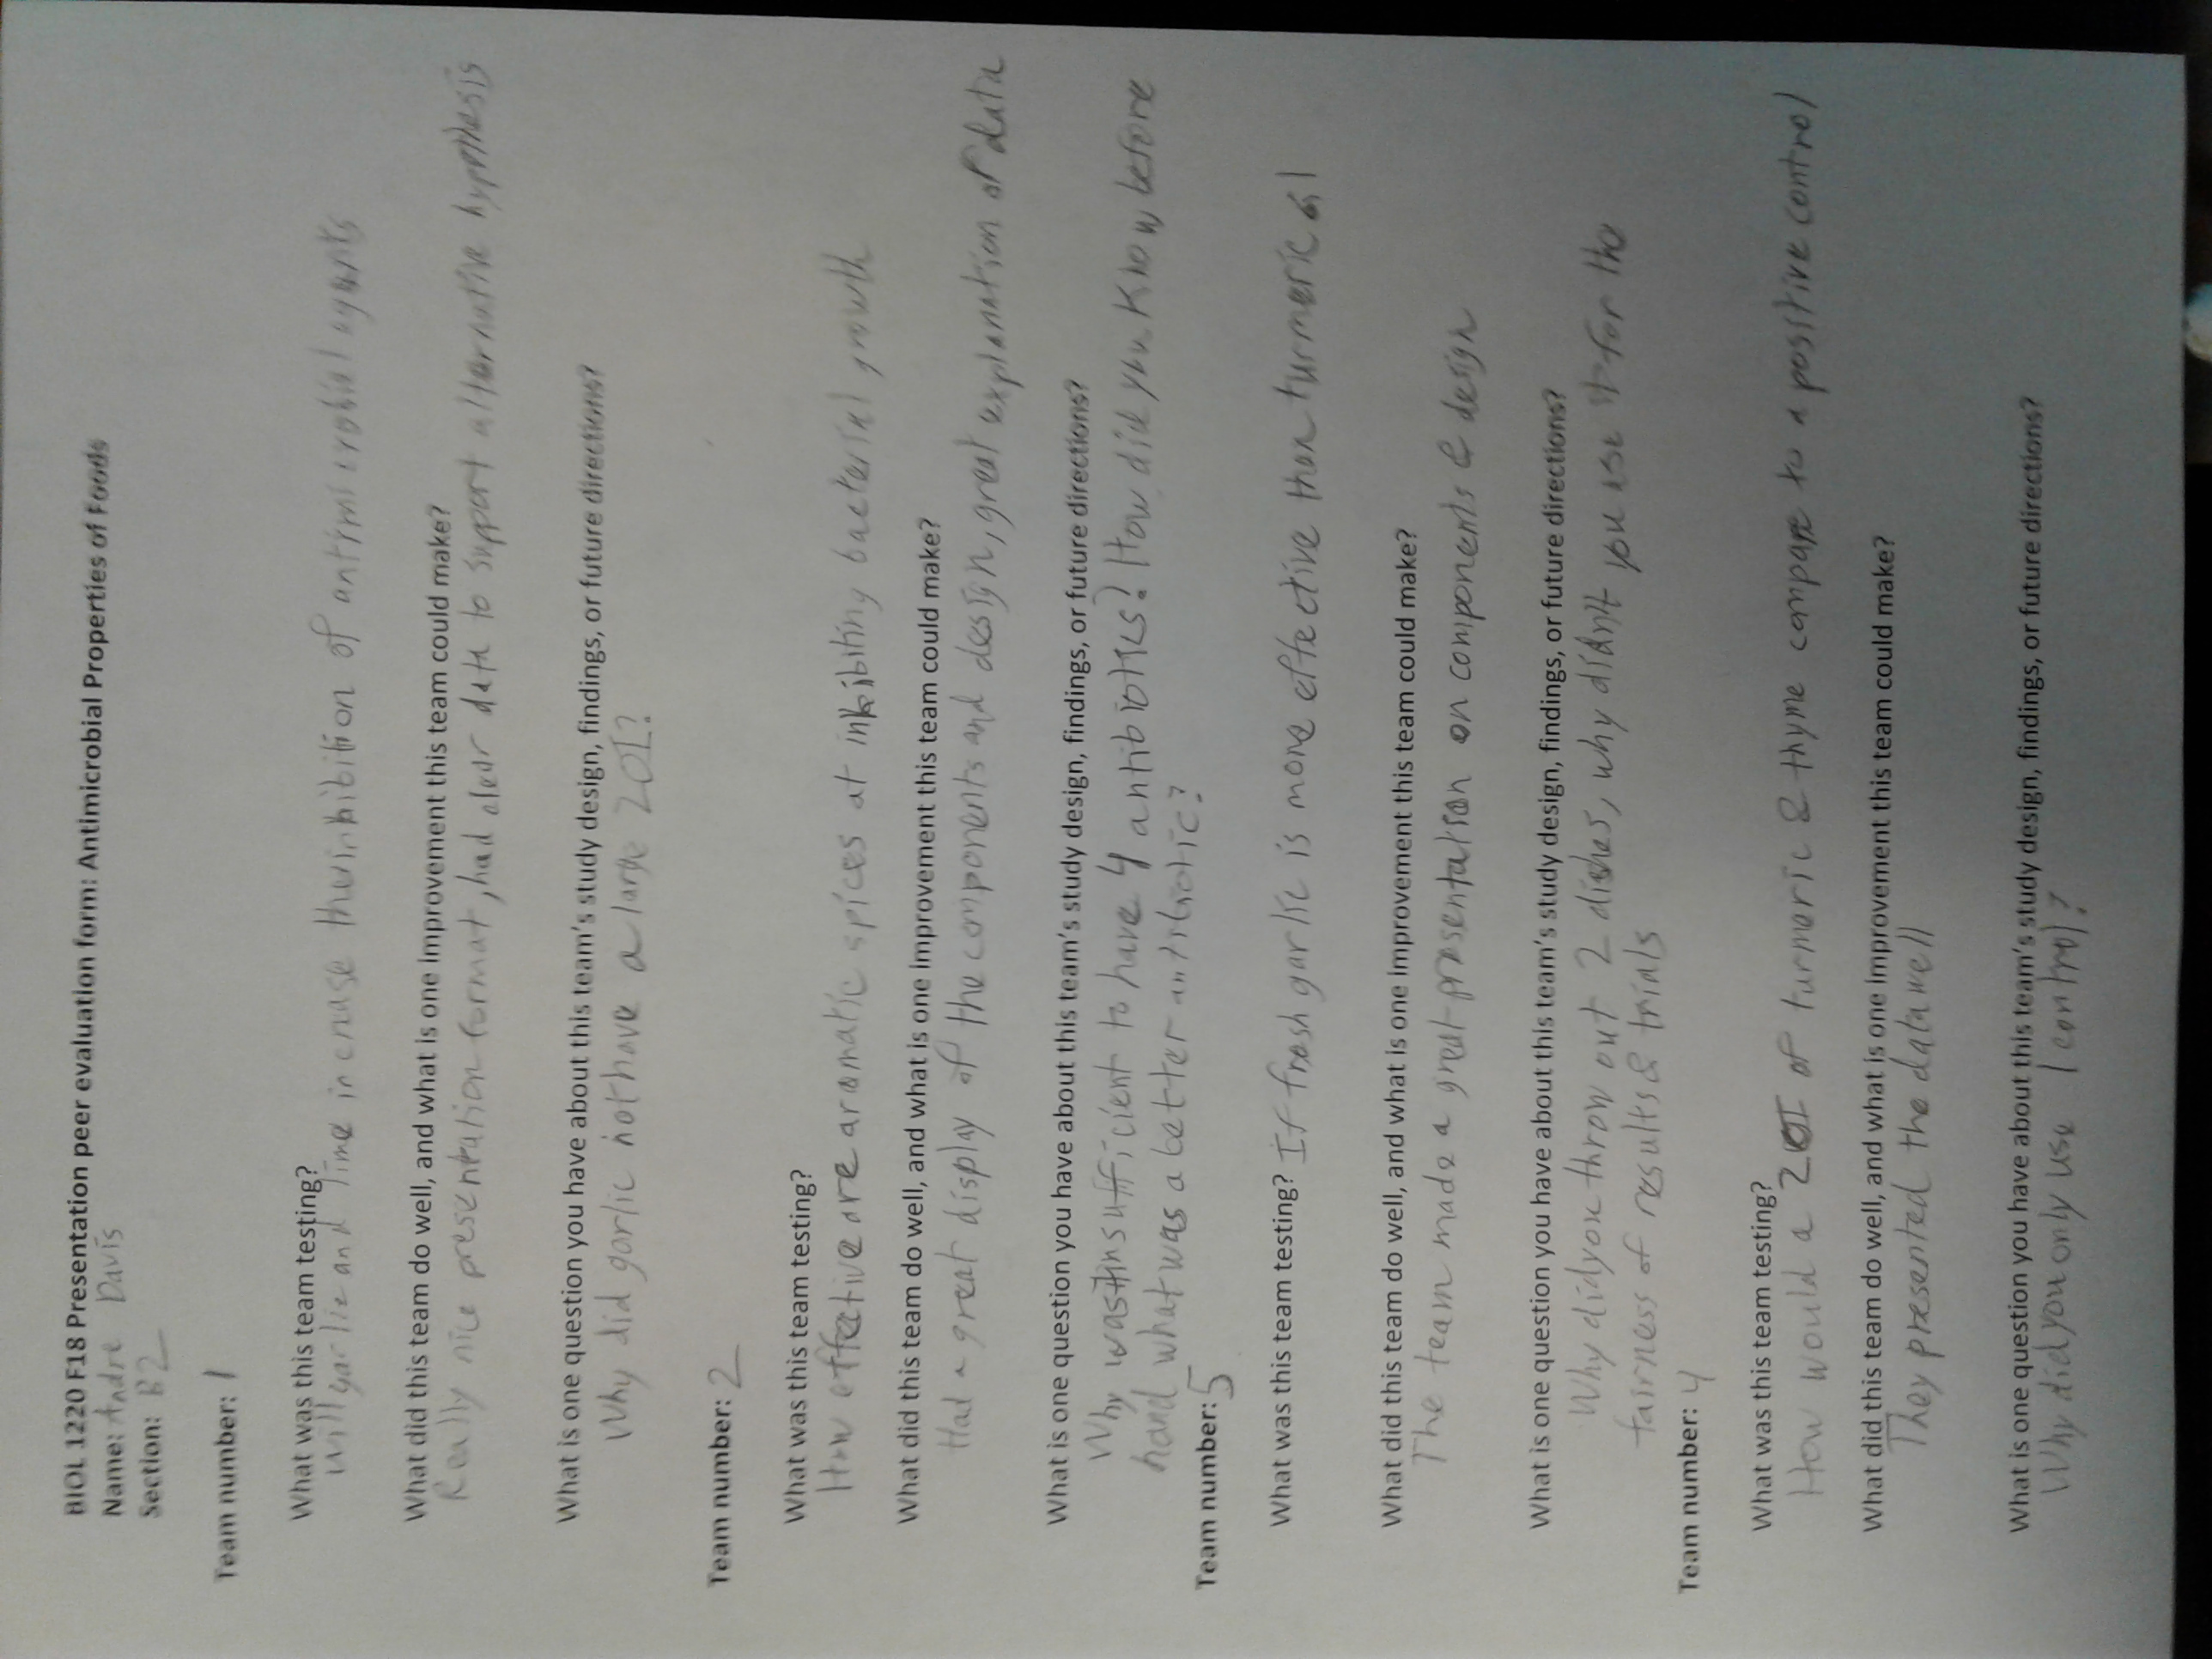 BIOL 1220 F18 Presentation peer evaluation form: Antimicrobial Properties of Foods
Name: Andre Davis
Section: B2
Team number: 1
What was this team testing?
Will garlic and lime increase the inhibition of antimicrobial agents
What did this team do well, and what is one improvement this team could make?
Really nice presentation format, had clear data to support alternative hypothesis
What is one question you have about this team's study design, findings, or future directions?
Why did garlic not have a large ZOI?
Team number: 2
What was this team testing?
How effective are aromatic spices at inhibiting bacterial growth
What did this team do well, and what is one improvement this team could make?
Had a great display of the components and design, great explanation of data
What is one question you have about this team's study design, findings, or future directions?
Why was it insufficient to have 4 antibiotics? How did you know before
hand what was a better antibiotic?
Team number: 5
What was this team testing? If fresh garlic is more effective than turmeric
What did this team do well, and what is one improvement this team could make?
The team made a great presentation on components & design
What is one question you have about this team's study design, findings, or future directions?
Why did you throw out 2 dishes, why didn't you use it for the
fairness of results & trials
Team number: 4
What was this team testing?
How would a ZOI of turmeric & thyme compare to a positive control
What did this team do well, and what is one improvement this team could make?
They presented the data well
What is one question you have about this team's study design, findings, or future directions?
Why did you only use 1 control?